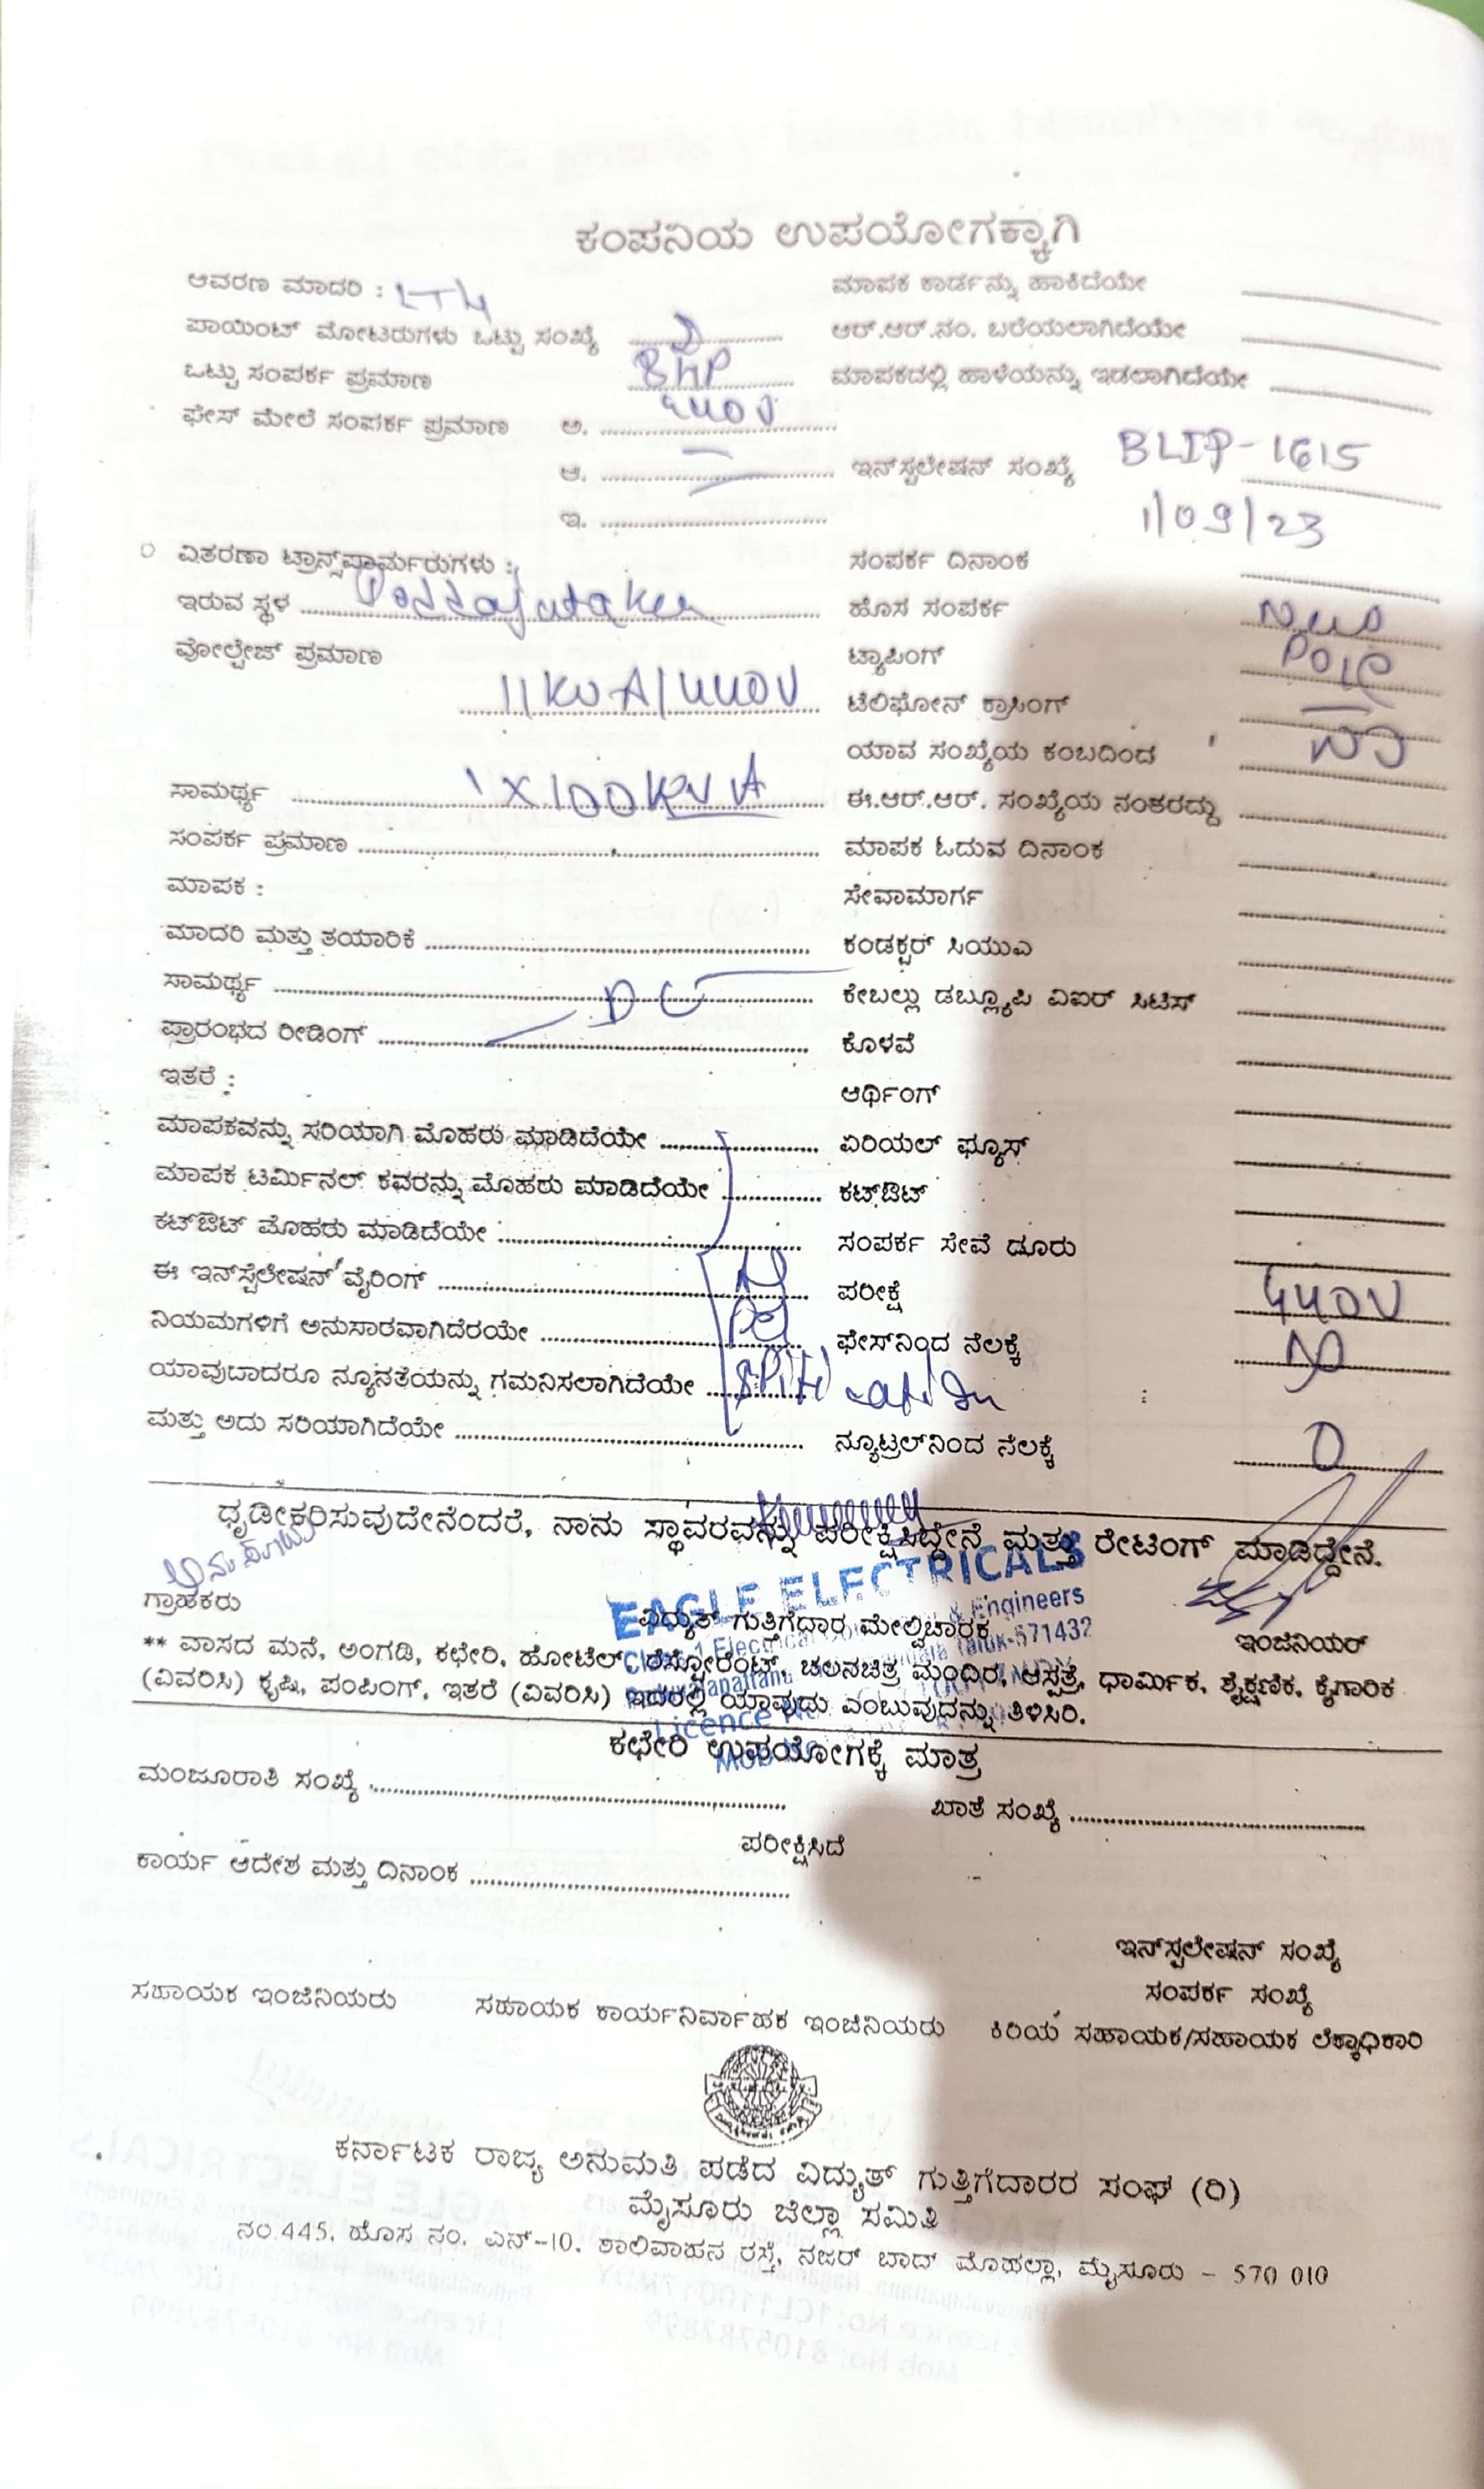 ಕಂಪನಿಯ ಉಪಯೋಗಕ್ಕಾಗಿ
ಆವರಣ ಮಾದರಿ : LT4
ಮಾಪಕ ಕಾರ್ಡನ್ನು ಹಾಕಿದೆಯೇ
ಪಾಯಿಂಟ್ ಮೋಟರುಗಳು ಒಟ್ಟು ಸಂಖ್ಯೆ
ಆರ್.ಆರ್.ನಂ. ಬರೆಯಲಾಗಿದೆಯೇ
ಒಟ್ಟು ಸಂಪರ್ಕ ಪ್ರಮಾಣ
ಮಾಪಕದಲ್ಲಿ ಹಾಳೆಯನ್ನು ಇಡಲಾಗಿದೆಯೇ
ಫೇಸ್ ಮೇಲೆ ಸಂಪರ್ಕ ಪ್ರಮಾಣ ಅ. 440V
ಆ.
ಇನ್‌ಸ್ಟಲೇಷನ್ ಸಂಖ್ಯೆ BLIP-1615
ಇ.
1/09/23
ವಿತರಣಾ ಟ್ರಾನ್ಸ್‌ಫಾರ್ಮರುಗಳು :
ಸಂಪರ್ಕ ದಿನಾಂಕ
ಇರುವ ಸ್ಥಳ
ಹೊಸ ಸಂಪರ್ಕ
ವೋಲ್ಟೇಜ್ ಪ್ರಮಾಣ 11KVA/440V
ಟ್ಯಾಪಿಂಗ್ Pole
ಟೆಲಿಫೋನ್ ಕ್ರಾಸಿಂಗ್
ಯಾವ ಸಂಖ್ಯೆಯ ಕಂಬದಿಂದ
ಸಾಮರ್ಥ್ಯ 1X100KVA
ಈ.ಆರ್.ಆರ್. ಸಂಖ್ಯೆಯ ನಂತರದ್ದು
ಸಂಪರ್ಕ ಪ್ರಮಾಣ
ಮಾಪಕ ಓದುವ ದಿನಾಂಕ
ಮಾಪಕ :
ಸೇವಾಮಾರ್ಗ
ಮಾದರಿ ಮತ್ತು ತಯಾರಿಕೆ
ಕಂಡಕ್ಟರ್ ಸಿಯುಎ
ಸಾಮರ್ಥ್ಯ DC
ಕೇಬಲ್ಲು ಡಬ್ಲ್ಯೂಪಿ ವಿಐರ್ ಸಿಟಿಸ್
ಪ್ರಾರಂಭದ ರೀಡಿಂಗ್
ಕೊಳವೆ
ಇತರೆ :
ಆರ್ಥಿಂಗ್
ಮಾಪಕವನ್ನು ಸರಿಯಾಗಿ ಮೊಹರು ಮಾಡಿದೆಯೇ
ಏರಿಯಲ್ ಫ್ಯೂಸ್
ಮಾಪಕ ಟರ್ಮಿನಲ್ ಕವರನ್ನು ಮೊಹರು ಮಾಡಿದೆಯೇ
ಕಟ್‌ಔಟ್
ಕಟ್‌ಔಟ್ ಮೊಹರು ಮಾಡಿದೆಯೇ
ಸಂಪರ್ಕ ಸೇವೆ ದೂರು
ಈ ಇನ್‌ಸ್ಟಲೇಷನ್ ವೈರಿಂಗ್
ಪರೀಕ್ಷೆ 440V
ನಿಯಮಗಳಿಗೆ ಅನುಸಾರವಾಗಿದೆರಯೇ
ಫೇಸ್‌ನಿಂದ ನೆಲಕ್ಕೆ
ಯಾವುದಾದರೂ ನ್ಯೂನತೆಯನ್ನು ಗಮನಿಸಲಾಗಿದೆಯೇ
ಮತ್ತು ಅದು ಸರಿಯಾಗಿದೆಯೇ
ನ್ಯೂಟ್ರಲ್‌ನಿಂದ ನೆಲಕ್ಕೆ 0
ಧೃಡೀಕರಿಸುವುದೇನೆಂದರೆ, ನಾನು ಸ್ಥಾವರವನ್ನು ಪರೀಕ್ಷಿಸಿದ್ದೇನೆ ಮತ್ತು ರೇಟಿಂಗ್ ಮಾಡಿದ್ದೇನೆ.
EAGLE ELECTRICALS
ಗ್ರಾಹಕರು
ವಿದ್ಯುತ್ ಗುತ್ತಿಗೆದಾರ ಮೇಲ್ವಿಚಾರಕ
& Engineers
ಇಂಜಿನಿಯರ್
** ವಾಸದ ಮನೆ, ಅಂಗಡಿ, ಕಛೇರಿ, ಹೋಟೆಲ್, ರೆಸ್ಟೋರೆಂಟ್, ಚಲನಚಿತ್ರ ಮಂದಿರ, ಆಸ್ಪತ್ರೆ, ಧಾರ್ಮಿಕ, ಶೈಕ್ಷಣಿಕ, ಕೈಗಾರಿಕ
(ವಿವರಿಸಿ) ಕೃಷಿ, ಪಂಪಿಂಗ್, ಇತರೆ (ವಿವರಿಸಿ) ಇದರಲ್ಲಿ ಯಾವುದು ಎಂಬುವುದನ್ನು ತಿಳಿಸಿರಿ.
ಕಛೇರಿ ಉಪಯೋಗಕ್ಕೆ ಮಾತ್ರ
ಮಂಜೂರಾತಿ ಸಂಖ್ಯೆ
ಖಾತೆ ಸಂಖ್ಯೆ
ಪರೀಕ್ಷಿಸಿದೆ
ಕಾರ್ಯ ಆದೇಶ ಮತ್ತು ದಿನಾಂಕ
ಇನ್‌ಸ್ಟಲೇಷನ್ ಸಂಖ್ಯೆ
ಸಂಪರ್ಕ ಸಂಖ್ಯೆ
ಸಹಾಯಕ ಇಂಜಿನಿಯರು ಸಹಾಯಕ ಕಾರ್ಯನಿರ್ವಾಹಕ ಇಂಜಿನಿಯರು ಕಿರಿಯ ಸಹಾಯಕ/ಸಹಾಯಕ ಲೆಕ್ಕಾಧಿಕಾರಿ
ಕರ್ನಾಟಕ ರಾಜ್ಯ ಅನುಮತಿ ಪಡೆದ ವಿದ್ಯುತ್ ಗುತ್ತಿಗೆದಾರರ ಸಂಘ (ರಿ)
ಮೈಸೂರು ಜಿಲ್ಲಾ ಸಮಿತಿ
ನಂ.445, ಹೊಸ ನಂ. ಎನ್-10, ಶಾಲಿವಾಹನ ರಸ್ತೆ, ನಜರ್ ಬಾದ್ ಮೊಹಲ್ಲಾ, ಮೈಸೂರು - 570 010